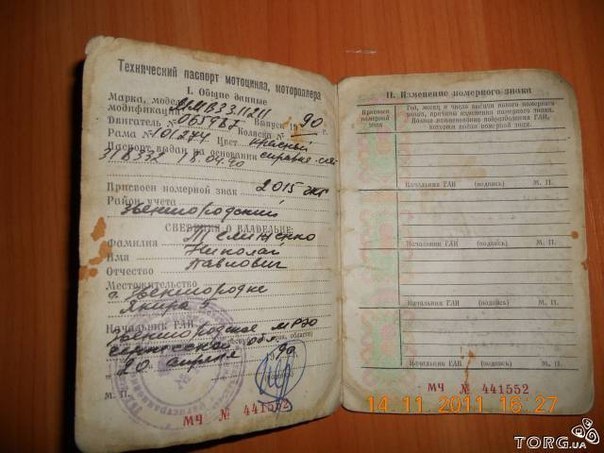 Технический паспорт мотоцикла, мотороллера
I. Общие данные
Марка, модель,
модификация ММВЗ 3.11211
Двигатель № 065987 Выпуск 1990 г.
Рама № 101274 Цвет красный
Паспорт выдан на основании справке-счёт
31В332 18.04.90
Присвоен номерной знак 2015
Район учета
Звенигородский
СВЕДЕНИЯ О ВЛАДЕЛЬЦЕ:
Фамилия
Имя Николай
Отчество Павлович
Местожительство
г. Звенигородка
Якира 5
Начальник ГАИ
Звенигородское МРЭО
Черкасской обл.
20 апреля 1990
М. П.
МЧ № 441552
II. Изменение номерного знака
Присвоен номерной знак
Год, месяц и число выдачи нового номерного
знака, причина изменения номерного знака.
Полное наименование подразделения ГАИ,
которым выдан номерной знак.
Начальник ГАИ (подпись) М. П.
Начальник ГАИ (подпись) М. П.
Начальник ГАИ (подпись) М. П.
Начальник ГАИ (подпись) М. П.
МЧ № 441552
14.11.2011 16:27
TORG.ua